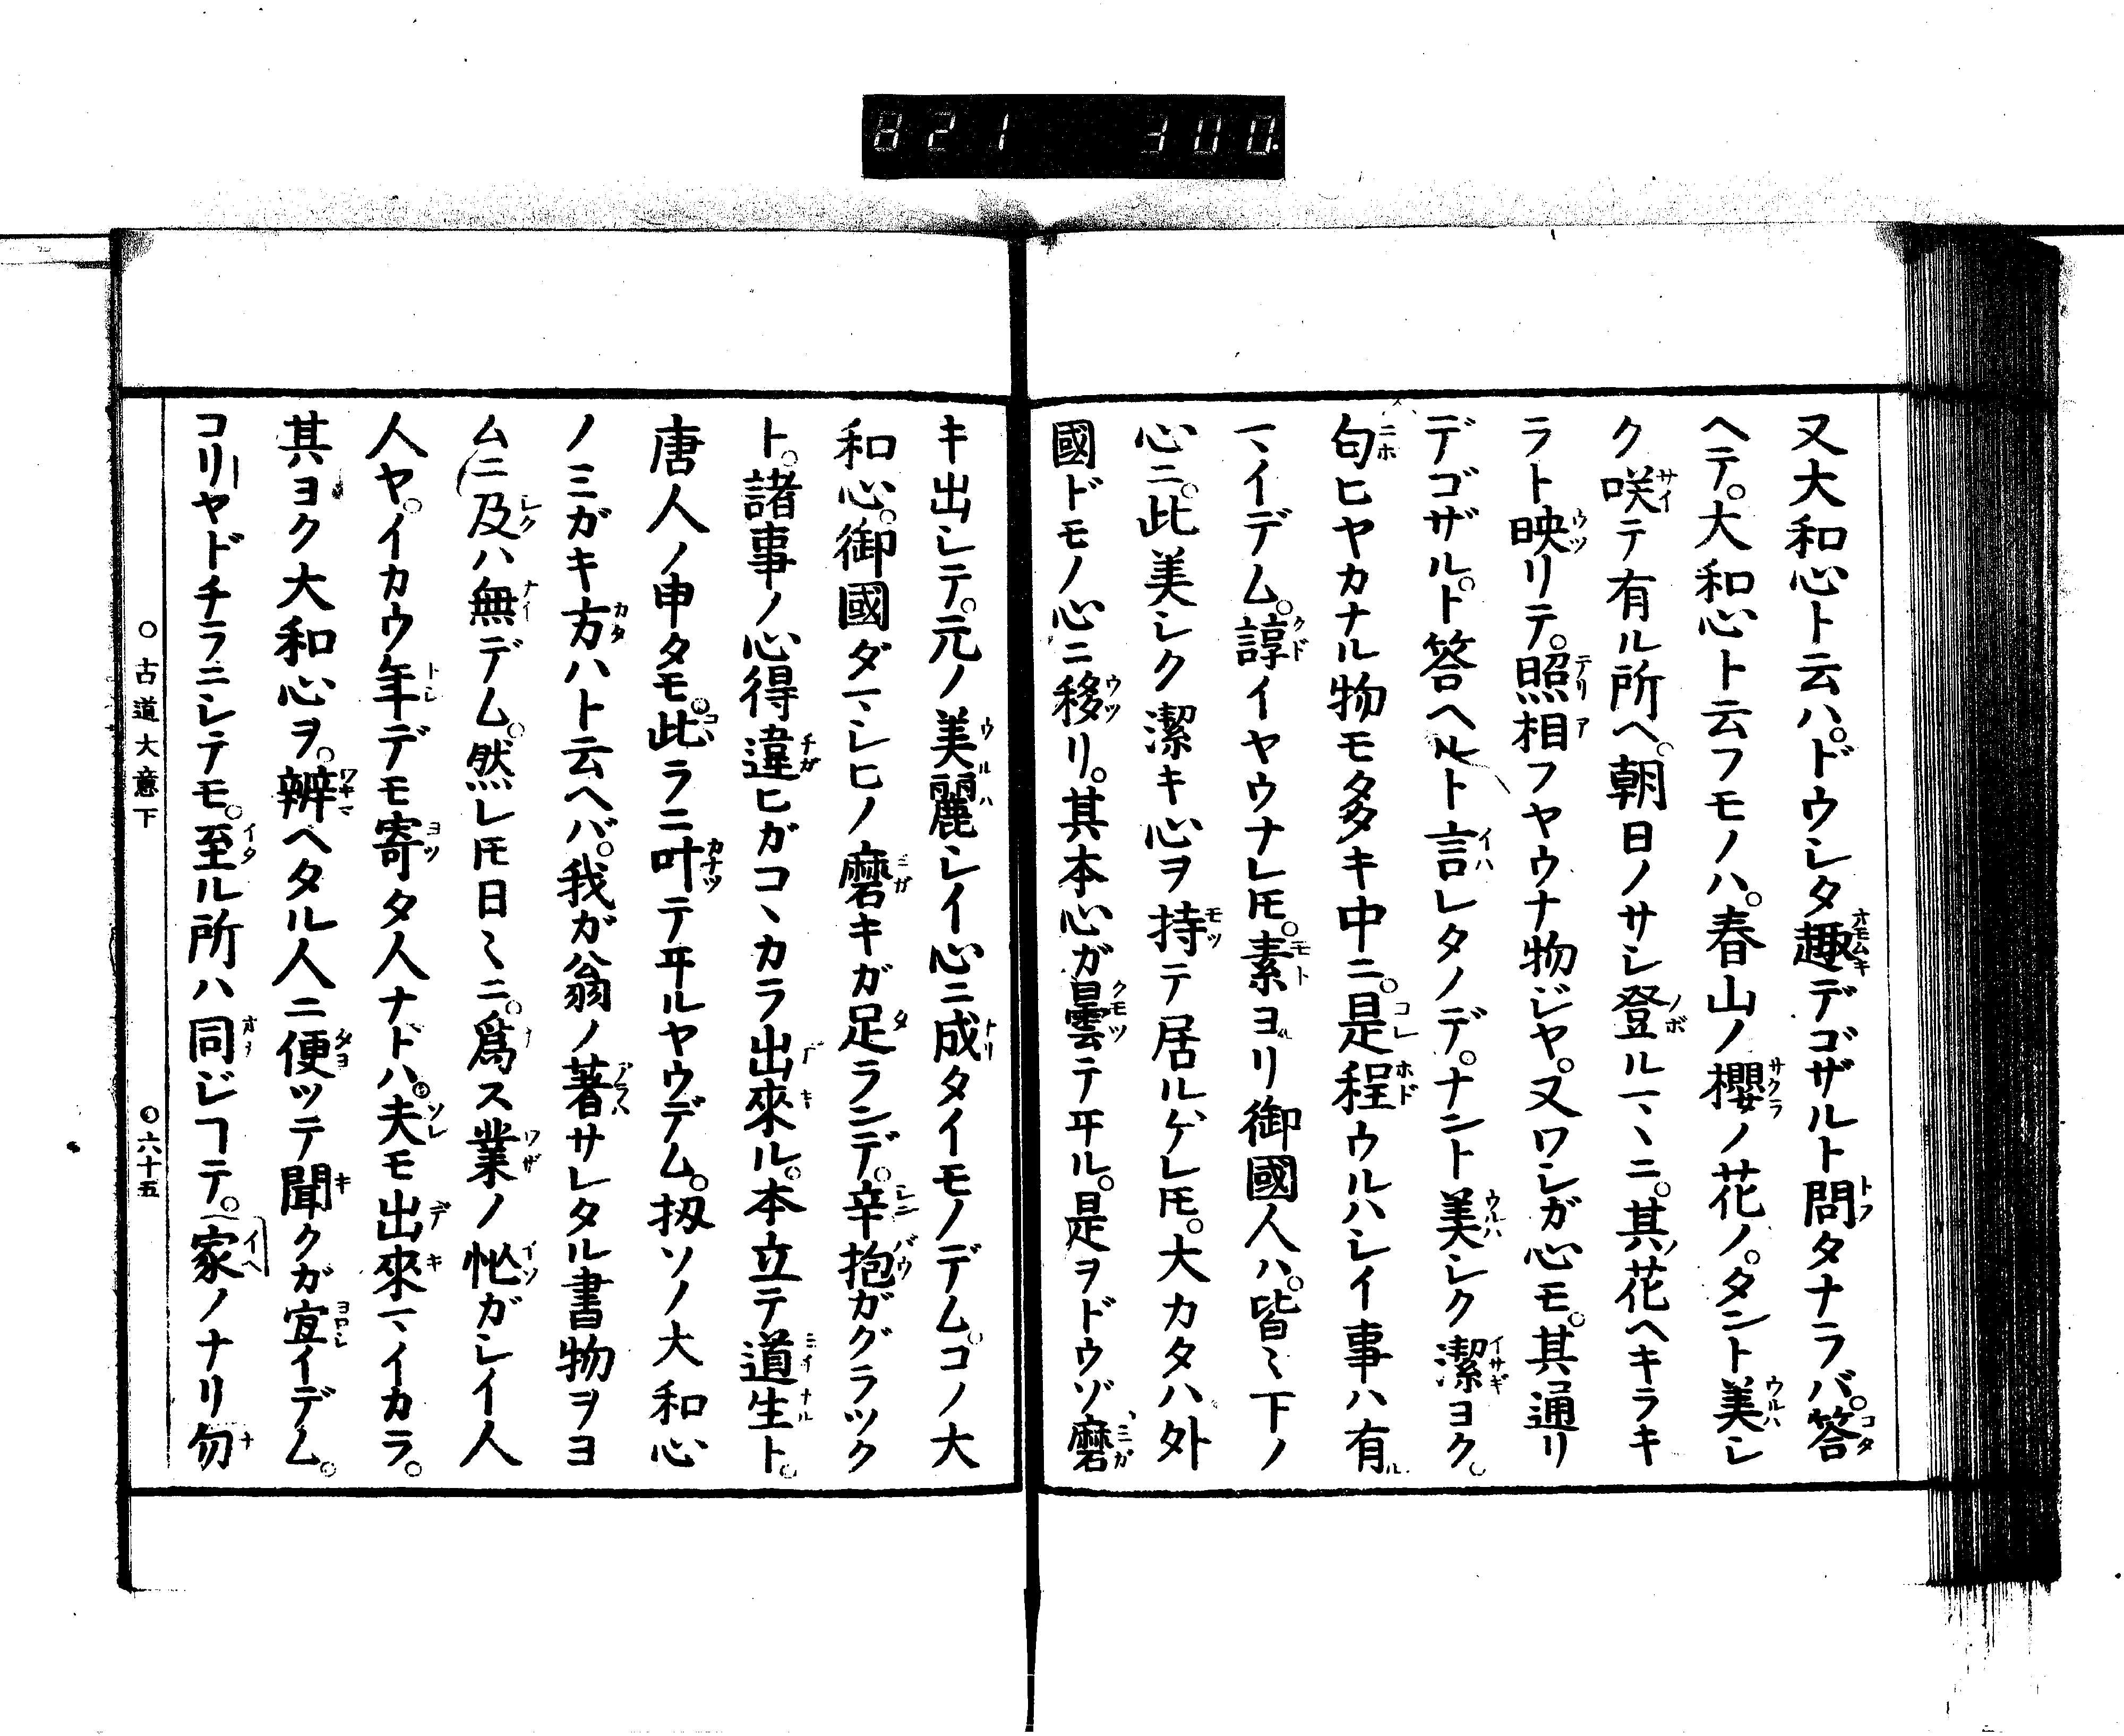 821 300.
又大和心ト云ハ。ドウシタ趣デゴザルト問タナラバ。答
ヘテ。大和心ト云フモノハ。春山ノ櫻ノ花ノ。タント美シ
ク咲テ有ル所ヘ。朝日ノサシ登ルマヽニ。其花ヘキラキ
ラト映リテ。照相フヤウナ物ジヤ。又ワシガ心モ。其通リ
デゴザル。ト答ヘルト言レタノデ。ナント美シク潔ヨク。
匂ヒヤカナル物モ多キ中ニ。是程ウルハシイ事ハ有
マイデム。諄イヤウナレ𪜈。素ヨリ御國人ハ。皆〻下ノ
心ニ。此美シク潔キ心ヲ持テ居ルゲレ𪜈。大カタハ外
國ドモノ心ニ移リ。其本心ガ曇テ井ル。是ヲドウゾ磨
キ出シテ。元ノ美麗シイ心ニ成タイモノデム。コノ大
和心。御國ダマシヒノ磨キガ足ランデ。辛抱ガグラツク
ト。諸事ノ心得違ヒガコヽカラ出來ル。本立テ道生ト。
唐人ノ申タモ。此ラニ叶テ井ルヤウデム。扨ソノ大和心
ノミガキ方ハト云ヘバ。我ガ翁ノ著サレタル書物ヲヨ
ムニ及ハ無デム。然レ𪜈日〻ニ。爲ス業ノ忙ガシイ人
人ヤ。イカウ年デモ寄タ人ナドハ。夫モ出來マイカラ。
其ヨク大和心ヲ。辨ヘタル人ニ便ツテ聞クガ宜イデム。
コリヤドチラニシテモ。至ル所ハ同ジヿテ。家ノナリ勿
○古道大意下
○六十五